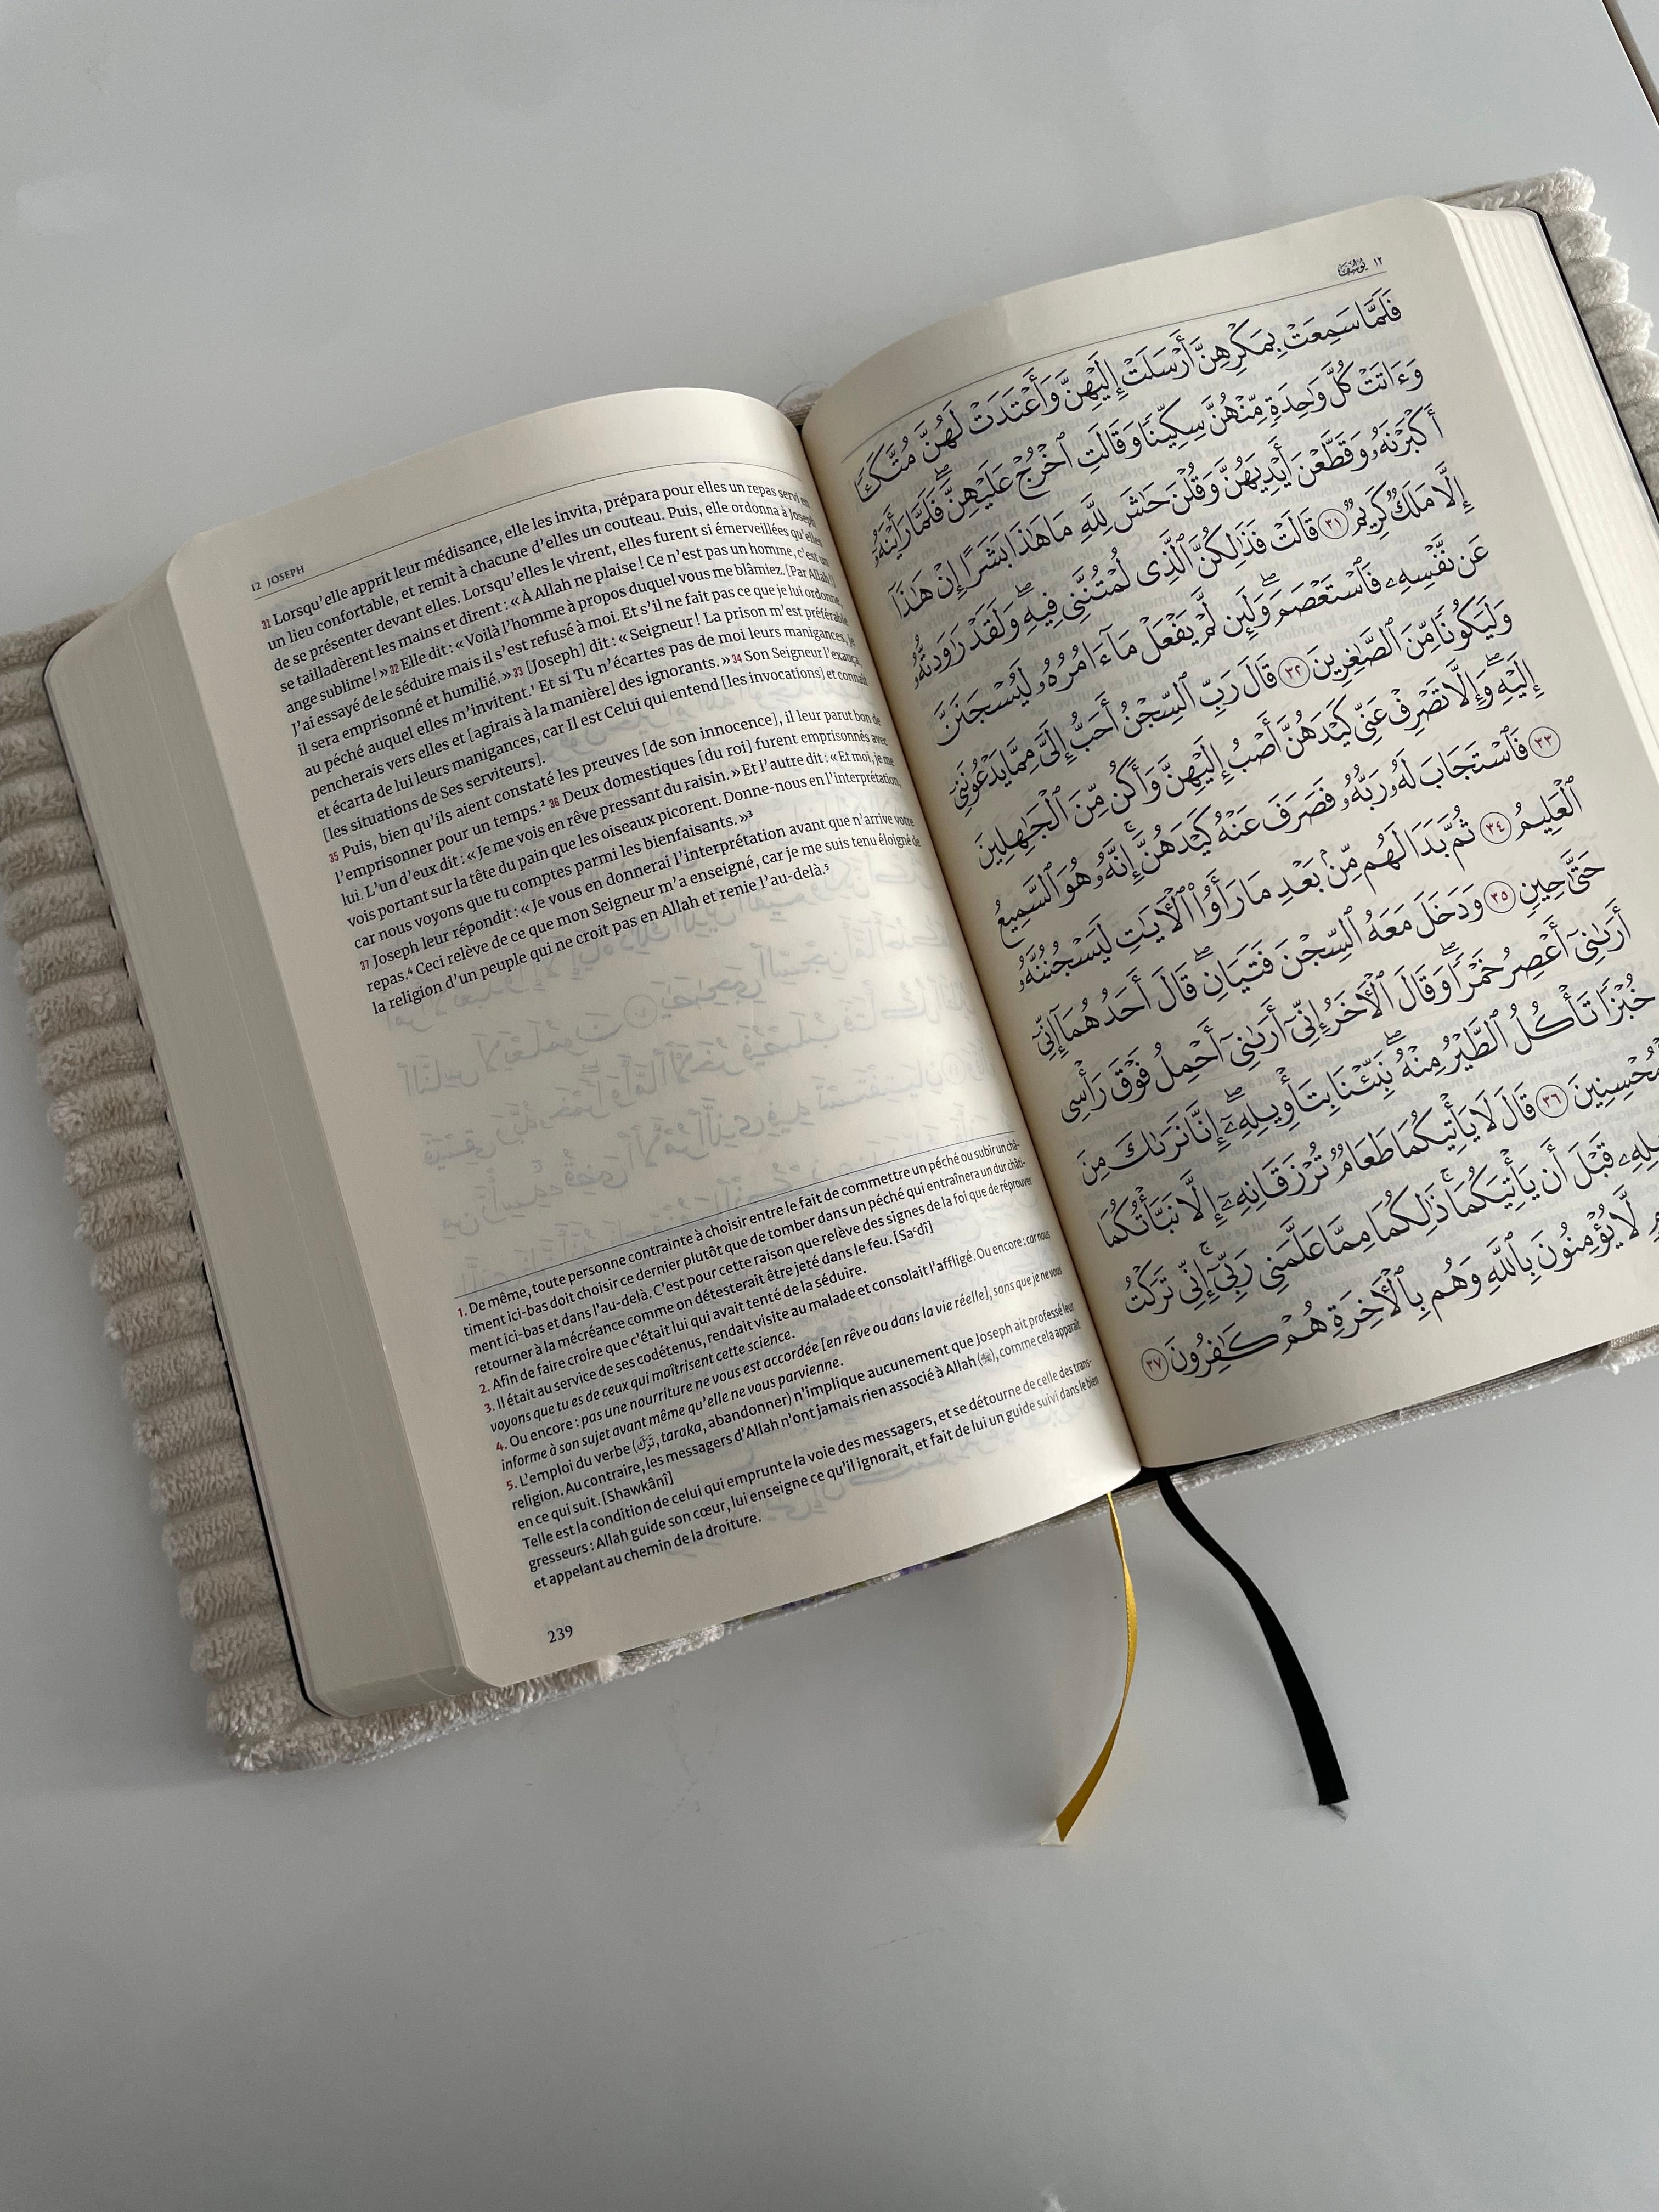 12 JOSEPH
31 Lorsqu'elle apprit leur médisance, elle les invita, prépara pour elles un repas servi en
un lieu confortable, et remit à chacune d'elles un couteau. Puis, elle ordonna à Joseph
de se présenter devant elles. Lorsqu'elles le virent, elles furent si émerveillées qu'elles
se tailladèrent les mains et dirent : « À Allah ne plaise ! Ce n'est pas un homme, c'est un
ange sublime ! » 32 Elle dit : « Voilà l'homme à propos duquel vous me blâmiez. [Par Allah !]
J'ai essayé de le séduire mais il s'est refusé à moi. Et s'il ne fait pas ce que je lui ordonne,
il sera emprisonné et humilié. » 33 [Joseph] dit : « Seigneur ! La prison m'est préférable
au péché auquel elles m'invitent.¹ Et si Tu n'écartes pas de moi leurs manigances, je
pencherais vers elles et [agirais à la manière] des ignorants. » 34 Son Seigneur l'exauça,
et écarta de lui leurs manigances, car Il est Celui qui entend [les invocations] et connaît
[les situations de Ses serviteurs].
35 Puis, bien qu'ils aient constaté les preuves [de son innocence], il leur parut bon de
l'emprisonner pour un temps.² 36 Deux domestiques [du roi] furent emprisonnés avec
lui. L'un d'eux dit : « Je me vois en rêve pressant du raisin. » Et l'autre dit : « Et moi, je me
vois portant sur la tête du pain que les oiseaux picorent. Donne-nous en l'interprétation,
car nous voyons que tu comptes parmi les bienfaisants. »³
37 Joseph leur répondit : « Je vous en donnerai l'interprétation avant que n'arrive votre
repas.⁴ Ceci relève de ce que mon Seigneur m'a enseigné, car je me suis tenu éloigné de
la religion d'un peuple qui ne croit pas en Allah et renie l'au-delà.⁵
1. De même, toute personne contrainte à choisir entre le fait de commettre un péché ou subir un châ-
timent ici-bas doit choisir ce dernier plutôt que de tomber dans un péché qui entraînera un dur châti-
ment ici-bas et dans l'au-delà. C'est pour cette raison que relève des signes de la foi que de réprouver
retourner à la mécréance comme on détesterait être jeté dans le feu. [Saʿdî]
2. Afin de faire croire que c'était lui qui avait tenté de la séduire.
3. Il était au service de ses codétenus, rendait visite au malade et consolait l'affligé. Ou encore : car nous
voyons que tu es de ceux qui maîtrisent cette science.
4. Ou encore : pas une nourriture ne vous est accordée [en rêve ou dans la vie réelle], sans que je ne vous
informe à son sujet avant même qu'elle ne vous parvienne.
5. L'emploi du verbe (تَرَكَ, taraka, abandonner) n'implique aucunement que Joseph ait professé leur
religion. Au contraire, les messagers d'Allah n'ont jamais rien associé à Allah (ﷻ), comme cela apparaît
en ce qui suit. [Shawkânî]
Telle est la condition de celui qui emprunte la voie des messagers, et se détourne de celle des trans-
gresseurs : Allah guide son cœur, lui enseigne ce qu'il ignorait, et fait de lui un guide suivi dans le bien
et appelant au chemin de la droiture.
239
١٢ يُوسُف
فَلَمَّا سَمِعَتْ بِمَكْرِهِنَّ أَرْسَلَتْ إِلَيْهِنَّ وَأَعْتَدَتْ لَهُنَّ مُتَّكَـًٔا
وَءَاتَتْ كُلَّ وَٰحِدَةٍ مِّنْهُنَّ سِكِّينًا وَقَالَتِ ٱخْرُجْ عَلَيْهِنَّ ۖ فَلَمَّا رَأَيْنَهُۥٓ
أَكْبَرْنَهُۥ وَقَطَّعْنَ أَيْدِيَهُنَّ وَقُلْنَ حَـٰشَ لِلَّهِ مَا هَـٰذَا بَشَرًا إِنْ هَـٰذَآ
إِلَّا مَلَكٌ كَرِيمٌ ٣١ قَالَتْ فَذَٰلِكُنَّ ٱلَّذِى لُمْتُنَّنِى فِيهِ ۖ وَلَقَدْ رَٰوَدتُّهُۥ
عَن نَّفْسِهِۦ فَٱسْتَعْصَمَ ۖ وَلَئِن لَّمْ يَفْعَلْ مَآ ءَامُرُهُۥ لَيُسْجَنَنَّ
وَلَيَكُونًا مِّنَ ٱلصَّـٰغِرِينَ ٣٢ قَالَ رَبِّ ٱلسِّجْنُ أَحَبُّ إِلَىَّ مِمَّا يَدْعُونَنِىٓ
إِلَيْهِ ۖ وَإِلَّا تَصْرِفْ عَنِّى كَيْدَهُنَّ أَصْبُ إِلَيْهِنَّ وَأَكُن مِّنَ ٱلْجَـٰهِلِينَ
٣٣ فَٱسْتَجَابَ لَهُۥ رَبُّهُۥ فَصَرَفَ عَنْهُ كَيْدَهُنَّ ۚ إِنَّهُۥ هُوَ ٱلسَّمِيعُ
ٱلْعَلِيمُ ٣٤ ثُمَّ بَدَا لَهُم مِّنۢ بَعْدِ مَا رَأَوُا۟ ٱلْـَٔايَـٰتِ لَيَسْجُنُنَّهُۥ
حَتَّىٰ حِينٍ ٣٥ وَدَخَلَ مَعَهُ ٱلسِّجْنَ فَتَيَانِ ۖ قَالَ أَحَدُهُمَآ إِنِّىٓ
أَرَىٰنِىٓ أَعْصِرُ خَمْرًا ۖ وَقَالَ ٱلْـَٔاخَرُ إِنِّىٓ أَرَىٰنِىٓ أَحْمِلُ فَوْقَ رَأْسِى
خُبْزًا تَأْكُلُ ٱلطَّيْرُ مِنْهُ ۖ نَبِّئْنَا بِتَأْوِيلِهِۦٓ ۖ إِنَّا نَرَىٰكَ مِنَ
٣٦ قَالَ لَا يَأْتِيكُمَا طَعَامٌ تُرْزَقَانِهِۦٓ إِلَّا نَبَّأْتُكُمَا
قَبْلَ أَن يَأْتِيَكُمَا ۚ ذَٰلِكُمَا مِمَّا عَلَّمَنِى رَبِّىٓ ۚ إِنِّى تَرَكْتُ
لَّا يُؤْمِنُونَ بِٱللَّهِ وَهُم بِٱلْـَٔاخِرَةِ هُمْ كَـٰفِرُونَ ٣٧